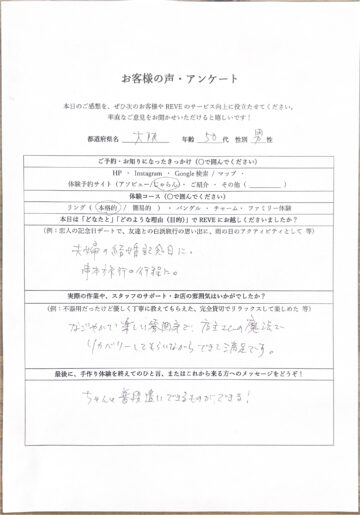 お客様の声・アンケート
本日のご感想を、ぜひ次のお客様や REVE のサービス向上に役立たせてください。
率直なご意見をお聞かせいただけると嬉しいです！
都道府県名 大阪 年齢 50 代 性別 男 性
ご予約・お知りになったきっかけ（〇で囲んでください）
HP ・ Instagram ・ Google 検索 / マップ ・
体験予約サイト（アソビュー/じゃらん）・ ご紹介 ・ その他（ ）
体験コース（〇で囲んでください）
リング（ 本格的 / 簡易的 ） ・ バングル ・ チャーム ・ ファミリー体験
本日は「どなたと」「どのような理由（目的）」で REVE にお越しくださいましたか？
（例：恋人の記念日デートで、友達との白浜旅行の思い出に、雨の日のアクティビティとして 等）
夫婦の結婚記念日に。
串本旅行の行程に。
実際の作業や、スタッフのサポート・お店の雰囲気はいかがでしたか？
（例：不器用だったけど優しく丁寧に教えてもらえた、完全貸切でリラックスして楽しめた 等）
なごやかで楽しい雰囲気で、店主さんの魔法で
リカバリーしてもらいながらできて満足です。
最後に、手作り体験を終えてのひと言、またはこれから来る方へのメッセージをどうぞ！
ちゃんと普段遣いできるものができる！